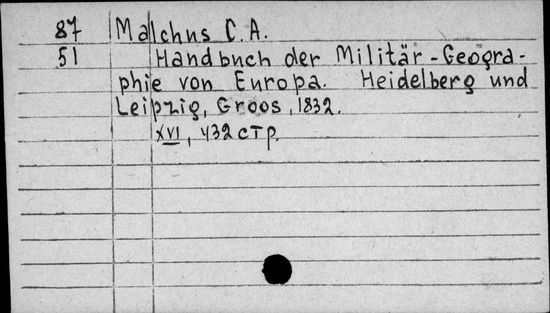 87 Malchus C.A.
51 Handbuch der Militär-Geogra-
phie von Europa. Heidelberg und
Leipzig, Groos, 1832.
XVI, 432 стр.